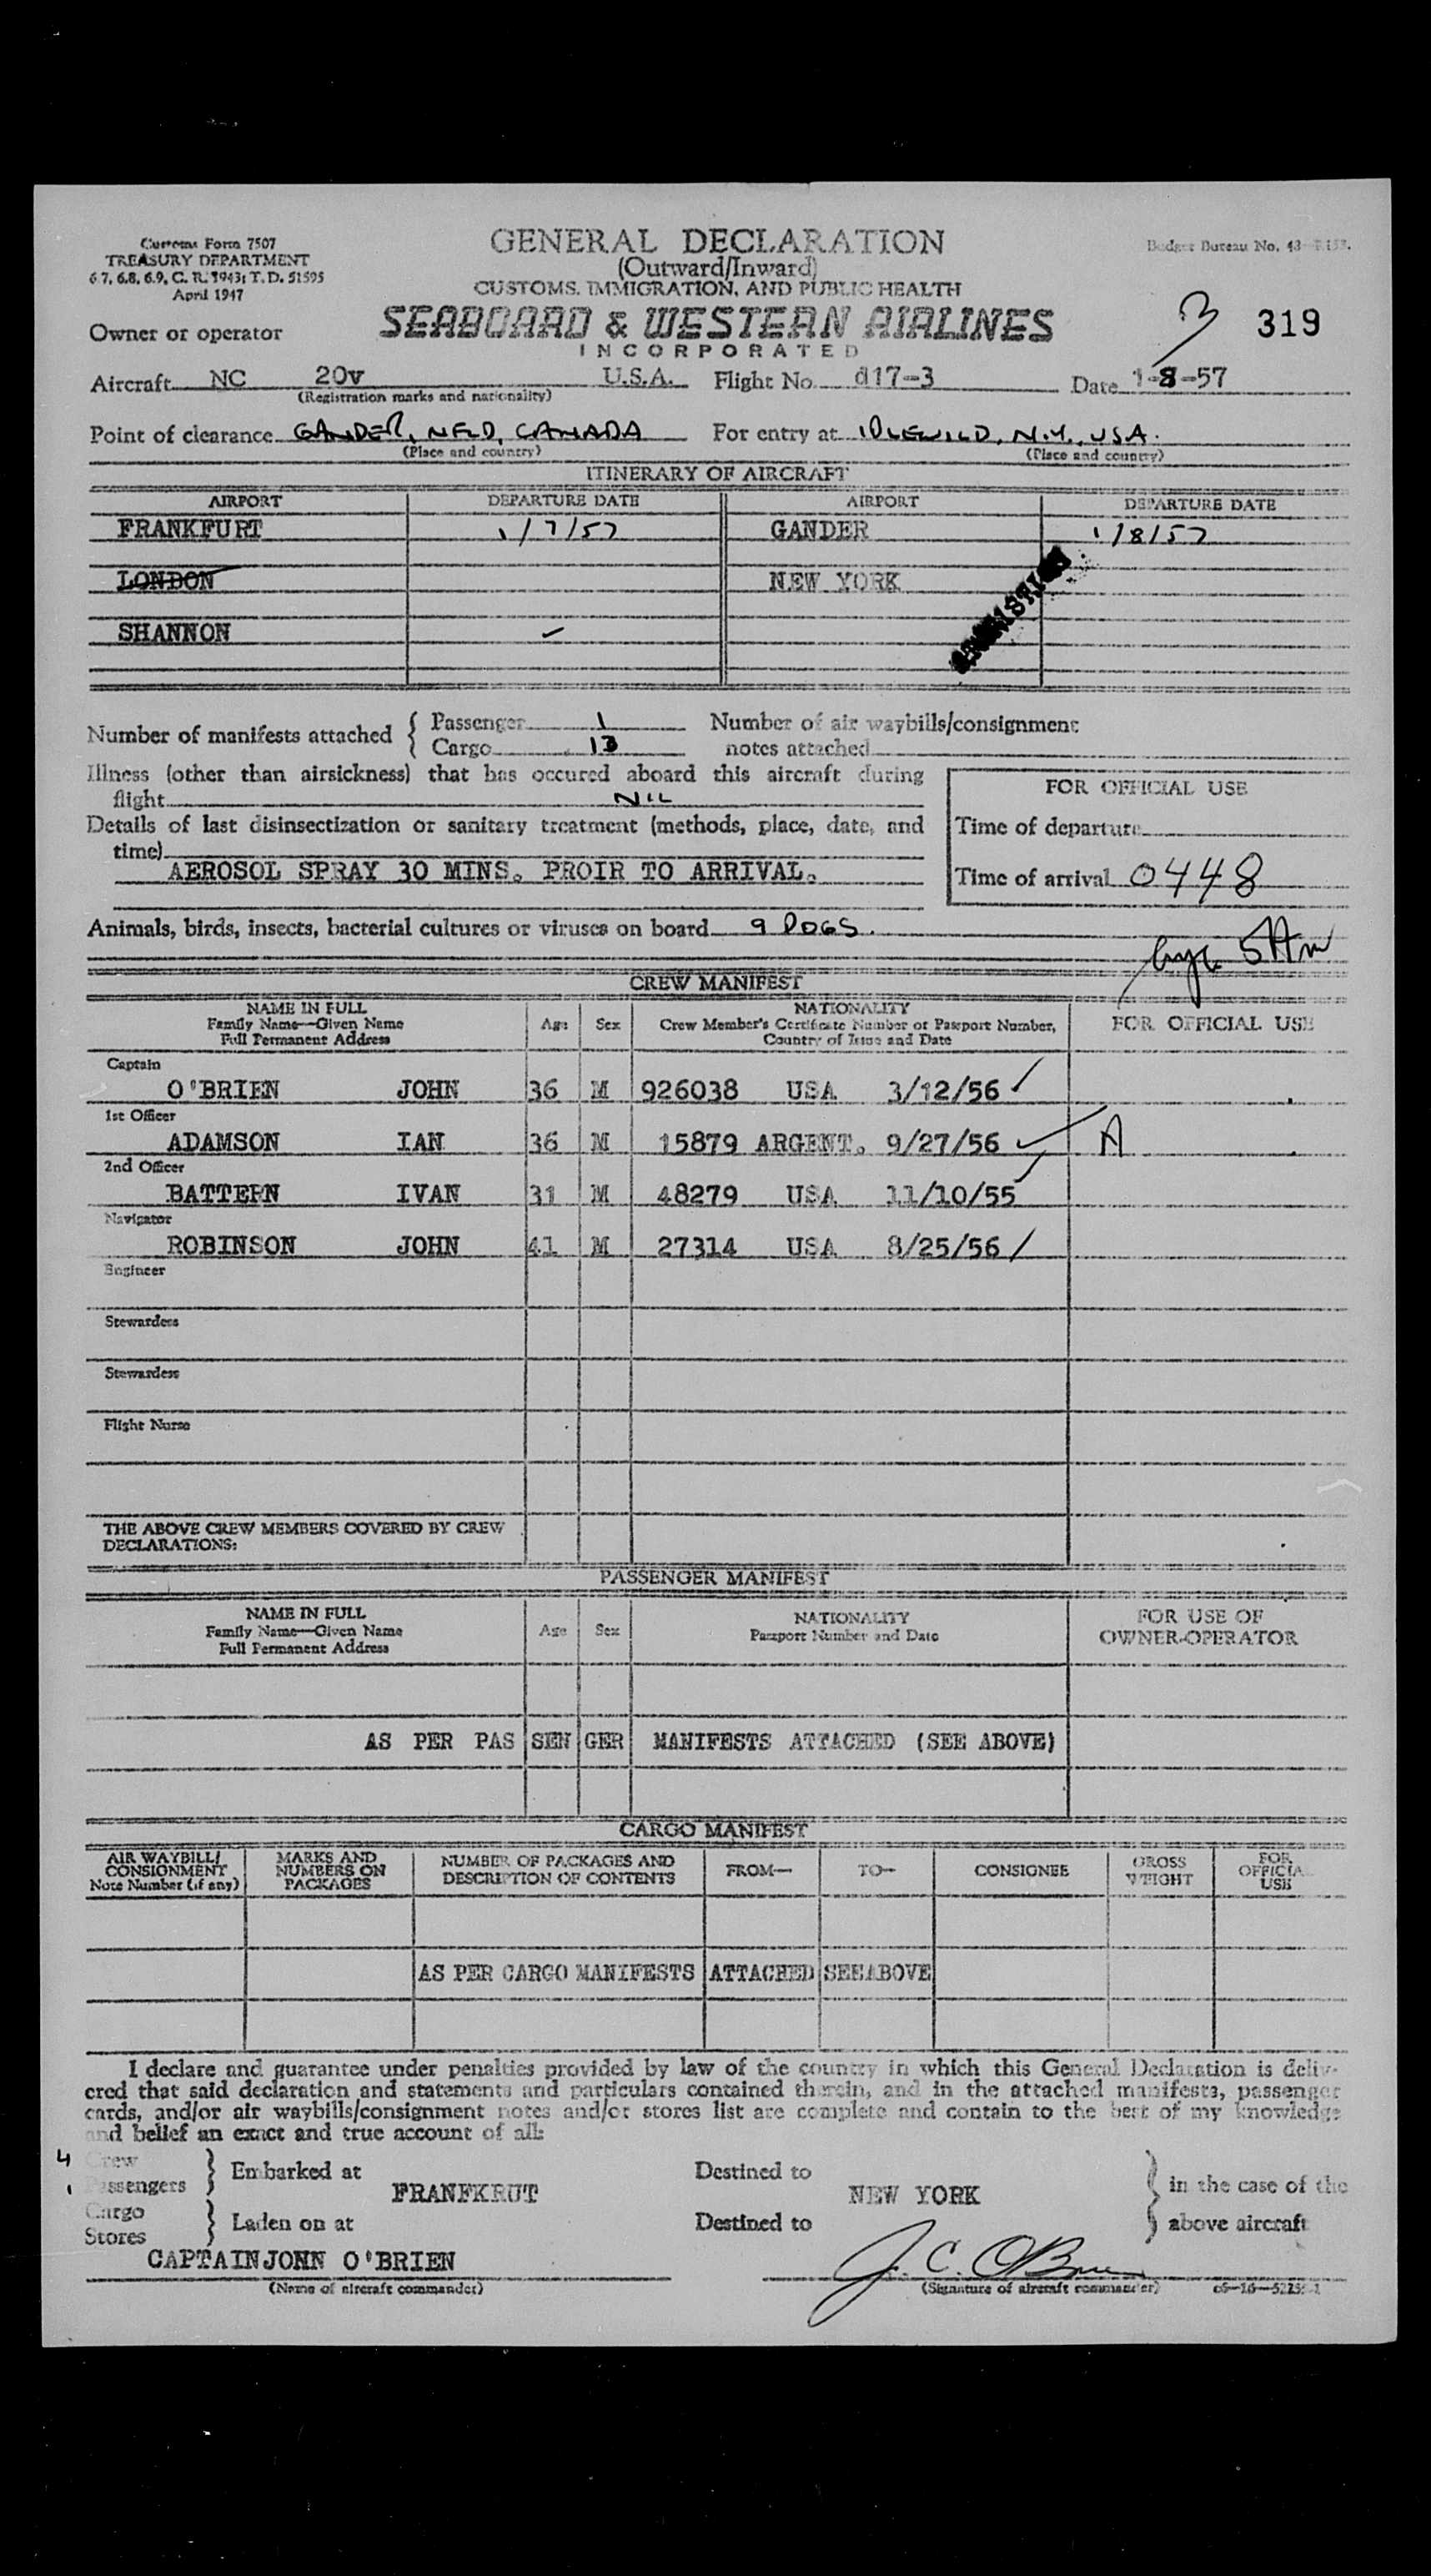 Customs Form 7507
TREASURY DEPARTMENT
6.7, 6.8, 6.9, C. R. 1943; T. D. 51595
April 1947
GENERAL DECLARATION
(Outward/Inward)
CUSTOMS, IMMIGRATION, AND PUBLIC HEALTH
Budget Bureau No.
Owner or operator
SEABOARD & WESTERN AIRLINES
INCORPORATED
3 319
Aircraft NC 20v U.S.A. Flight No. d17-3 Date 1-8-57
(Registration marks and nationality)
Point of clearance GANDER, NFLD, CANADA For entry at IDLEWILD, N.Y., USA.
(Place and country) (Place and country)
ITINERARY OF AIRCRAFT
AIRPORT DEPARTURE DATE AIRPORT DEPARTURE DATE
FRANKFURT 1/7/57 GANDER 1/8/57
LONDON NEW YORK
SHANNON
Number of manifests attached { Passenger 1 Number of air waybills/consignment
Cargo 13 notes attached
Illness (other than airsickness) that has occured aboard this aircraft during
flight NIL
FOR OFFICIAL USE
Details of last disinsectization or sanitary treatment (methods, place, date, and
time)
Time of departure
AEROSOL SPRAY 30 MINS. PROIR TO ARRIVAL.
Time of arrival 0448
Animals, birds, insects, bacterial cultures or viruses on board 9 DOGS.
5 Am
CREW MANIFEST
NAME IN FULL
Family Name—Given Name
Full Permanent Address
Age Sex
NATIONALITY
Crew Member's Certificate Number or Passport Number,
Country of Issue and Date
FOR OFFICIAL USE
Captain
O'BRIEN JOHN 36 M 926038 USA 3/12/56
1st Officer
ADAMSON IAN 36 M 15879 ARGENT. 9/27/56 A
2nd Officer
BATTERN IVAN 31 M 48279 USA 11/10/55
Navigator
ROBINSON JOHN 41 M 27314 USA 8/25/56
Engineer
Stewardess
Stewardess
Flight Nurse
THE ABOVE CREW MEMBERS COVERED BY CREW
DECLARATIONS:
PASSENGER MANIFEST
NAME IN FULL
Family Name—Given Name
Full Permanent Address
Age Sex
NATIONALITY
Passport Number and Date
FOR USE OF
OWNER-OPERATOR
AS PER PAS SEN GER MANIFESTS ATTACHED (SEE ABOVE)
CARGO MANIFEST
AIR WAYBILL/
CONSIGNMENT
Note Number (if any)
MARKS AND
NUMBERS ON
PACKAGES
NUMBER OF PACKAGES AND
DESCRIPTION OF CONTENTS
FROM—
TO—
CONSIGNEE
GROSS
WEIGHT
FOR
OFFICIAL
USE
AS PER CARGO MANIFESTS ATTACHED SEE ABOVE
I declare and guarantee under penalties provided by law of the country in which this General Declaration is deliv-
ered that said declaration and statements and particulars contained therein, and in the attached manifests, passenger
cards, and/or air waybills/consignment notes and/or stores list are complete and contain to the best of my knowledge
and belief an exact and true account of all:
4 Crew
1 Passengers } Embarked at FRANFKRUT Destined to NEW YORK } in the case of the
Cargo
Stores } Laden on at Destined to } above aircraft
CAPTAIN JOHN O'BRIEN J. C. O'Brien
(Name of aircraft commander) (Signature of aircraft commander)